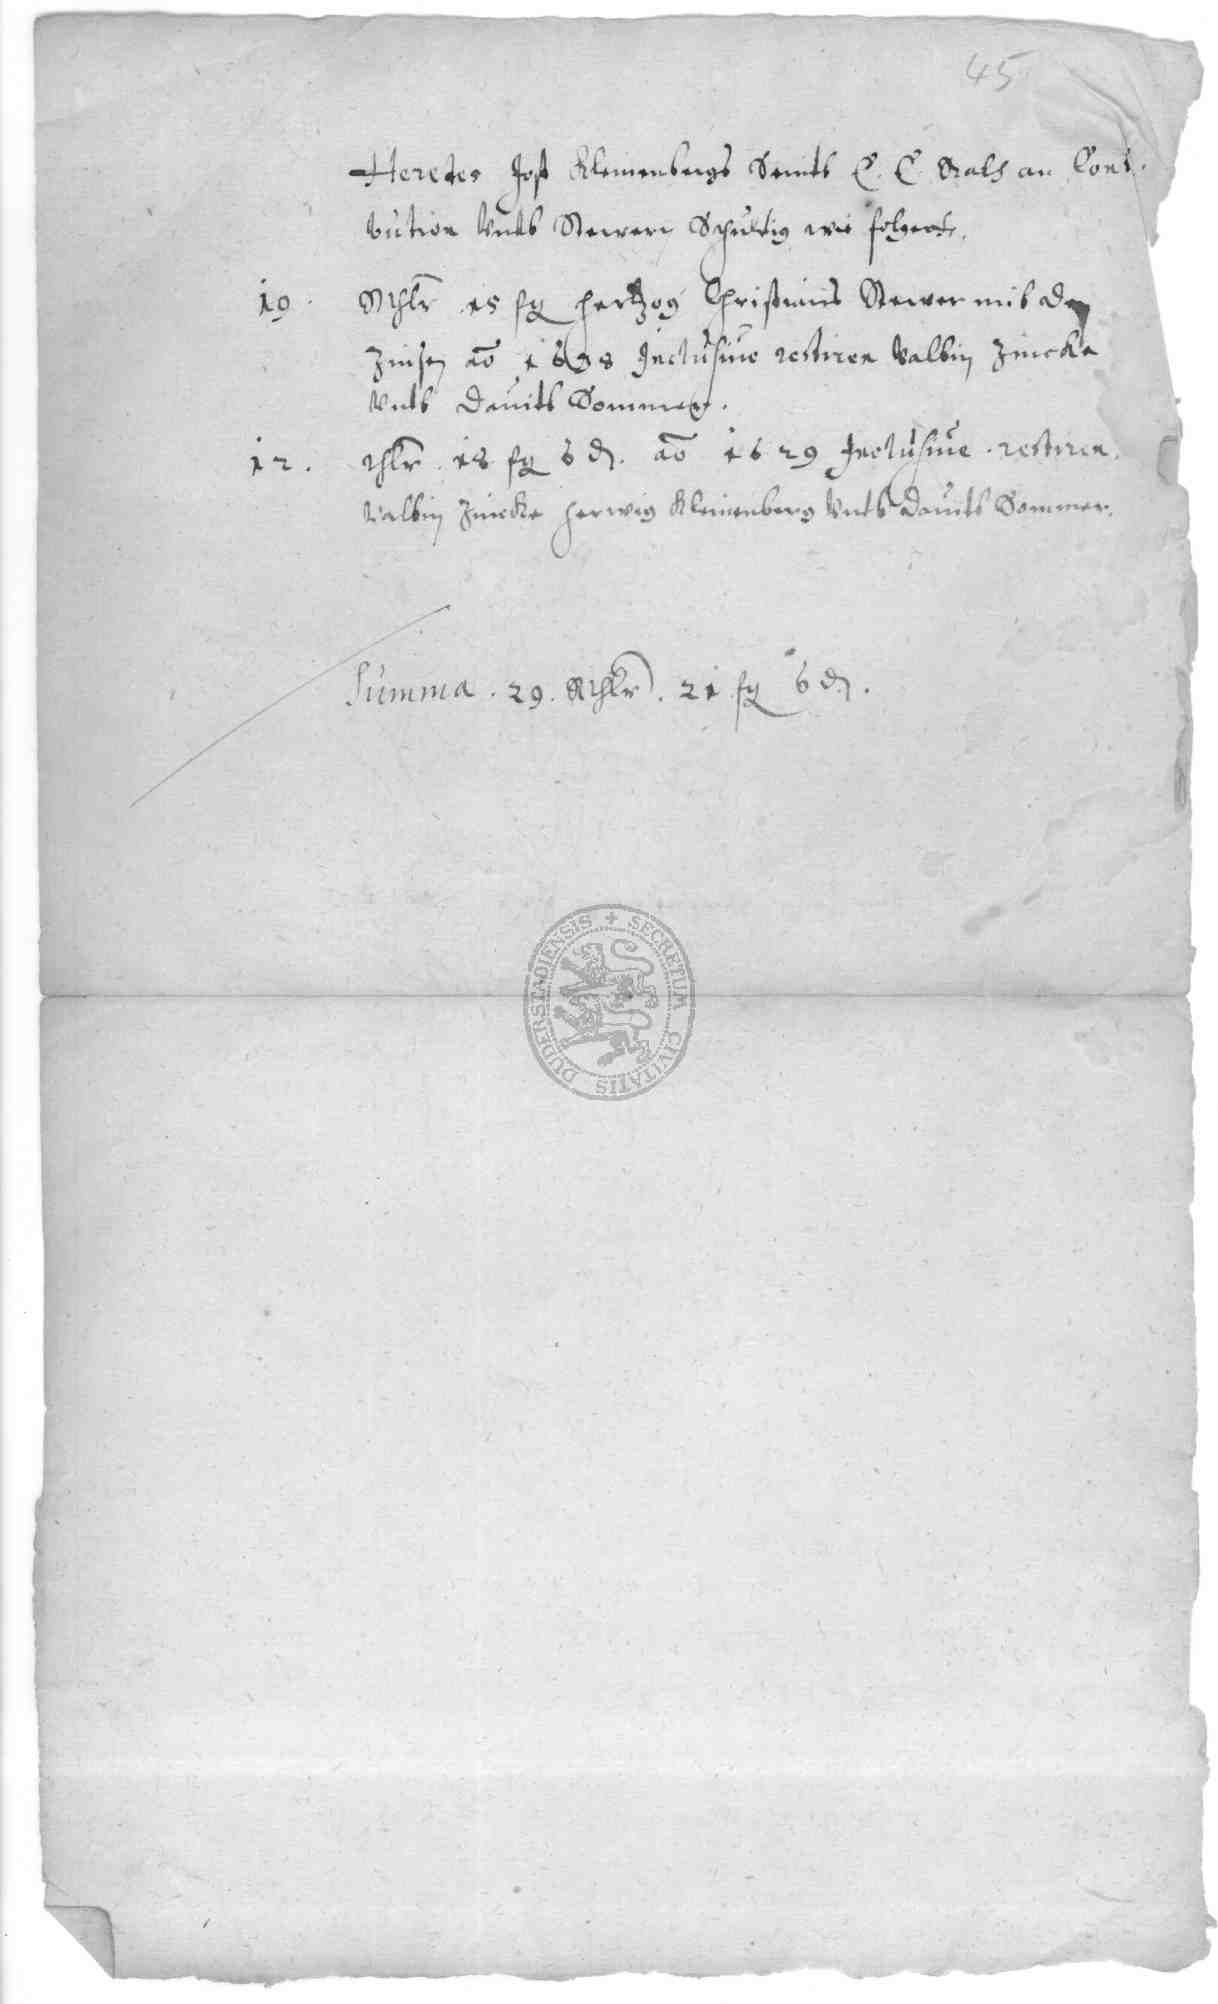 45
Heredes Jost Kleinenbergs Seindt E. E. Rath an Cont.
bution Undt Stewern Schuldig wie folgedt.
19. Rthlr 15 ßg Hertzog Christians Stewer mit den
Zinsen ao 1628 Inclusive restiren Valtin Zincke
Undt Davidt Sommer.
12. rthlr. 18 ßg 6 d. ao 1629 Inclusive. restiren.
Valtin Zincke Herwig Kleinenberg Undt Davidt Sommer.
Summa. 29. Rthlr. 21 ßg 6 d.
SECRETUM CIVITATIS DUDERSTADIENSIS